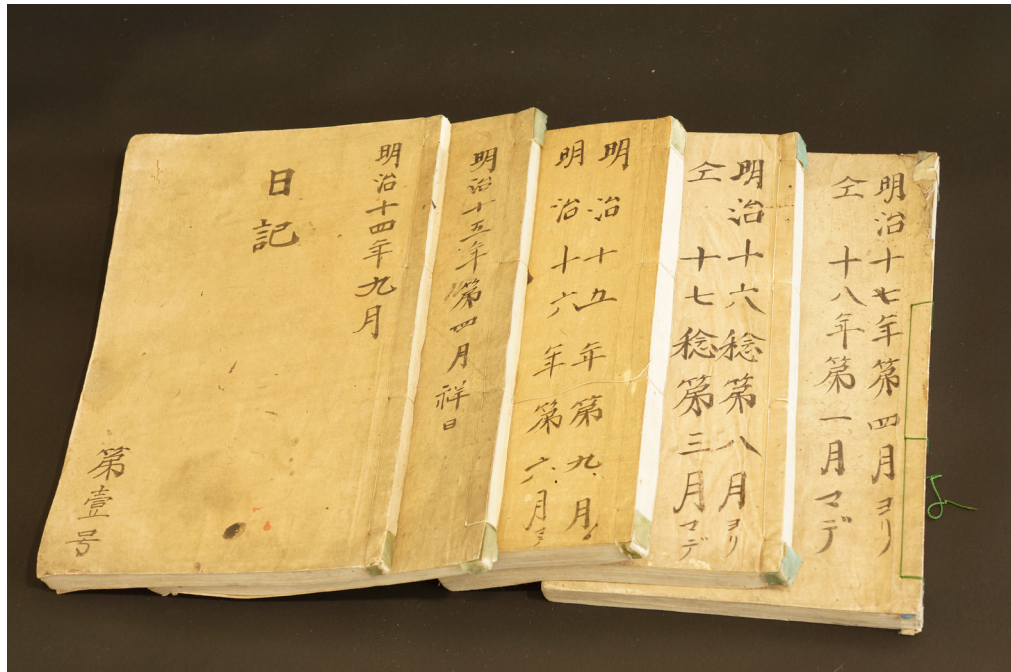 明治十四年九月
日記
第壹号
明治十五年第四月祥日
明治十五年第九月
明治十六年第六月
明治十六稔第八月ヨリ
仝十七稔第三月マデ
明治十七年第四月ヨリ
仝十八年第一月マデ